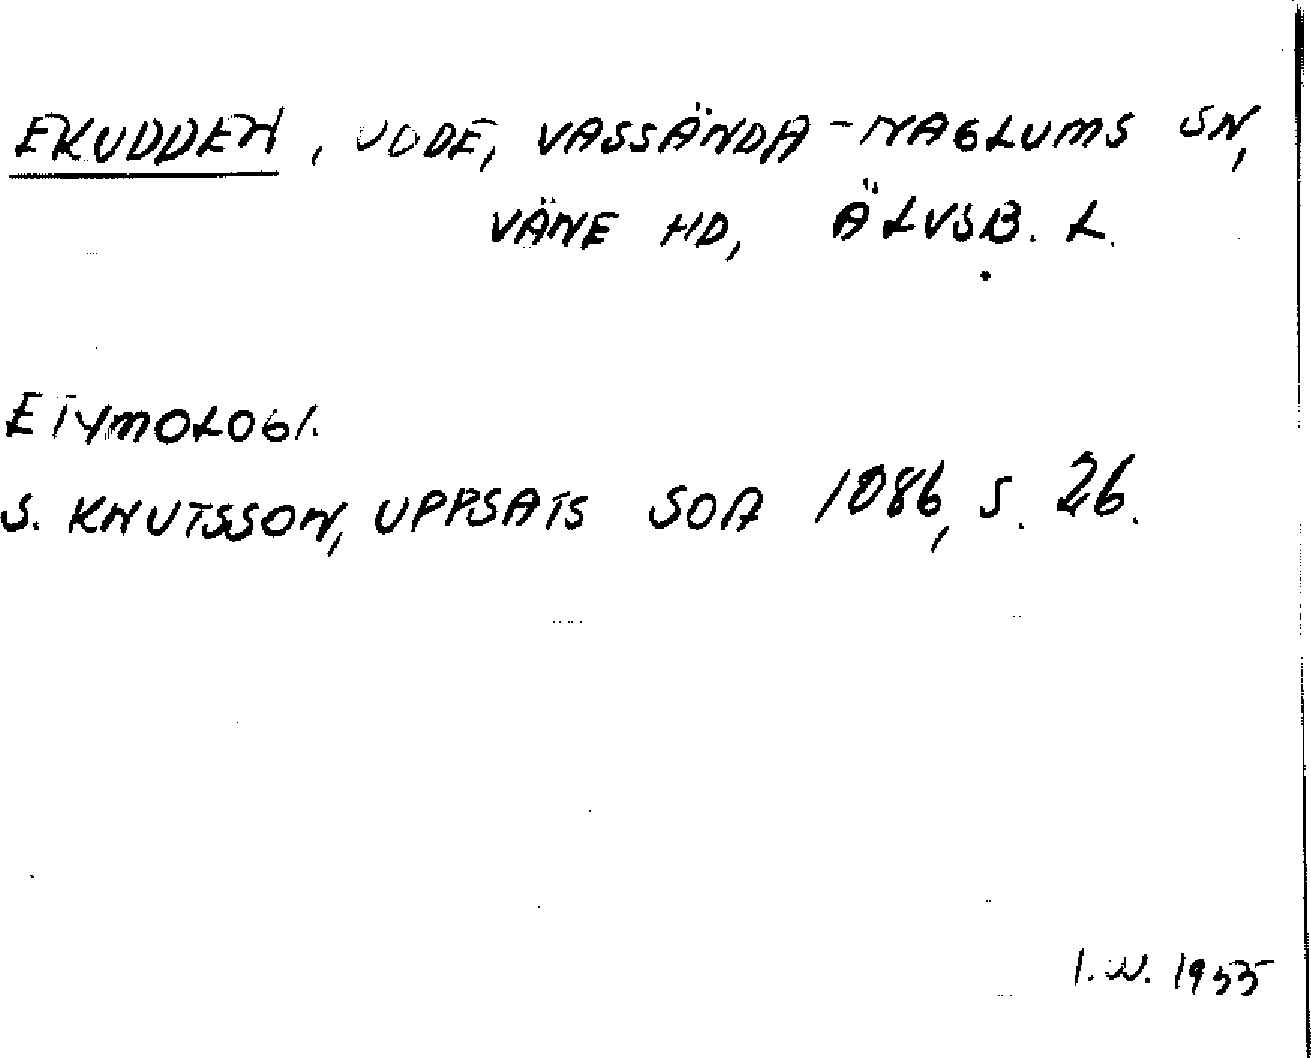 EKUDDEN, UDDE, VASSÄNDA-NAGLUMS SN,
VÄNE HD, ÄLVSB. L.
ETYMOLOGI.
S. KNUTSSON, UPPSATS SOA 1086, S. 26.
I.W. 1955